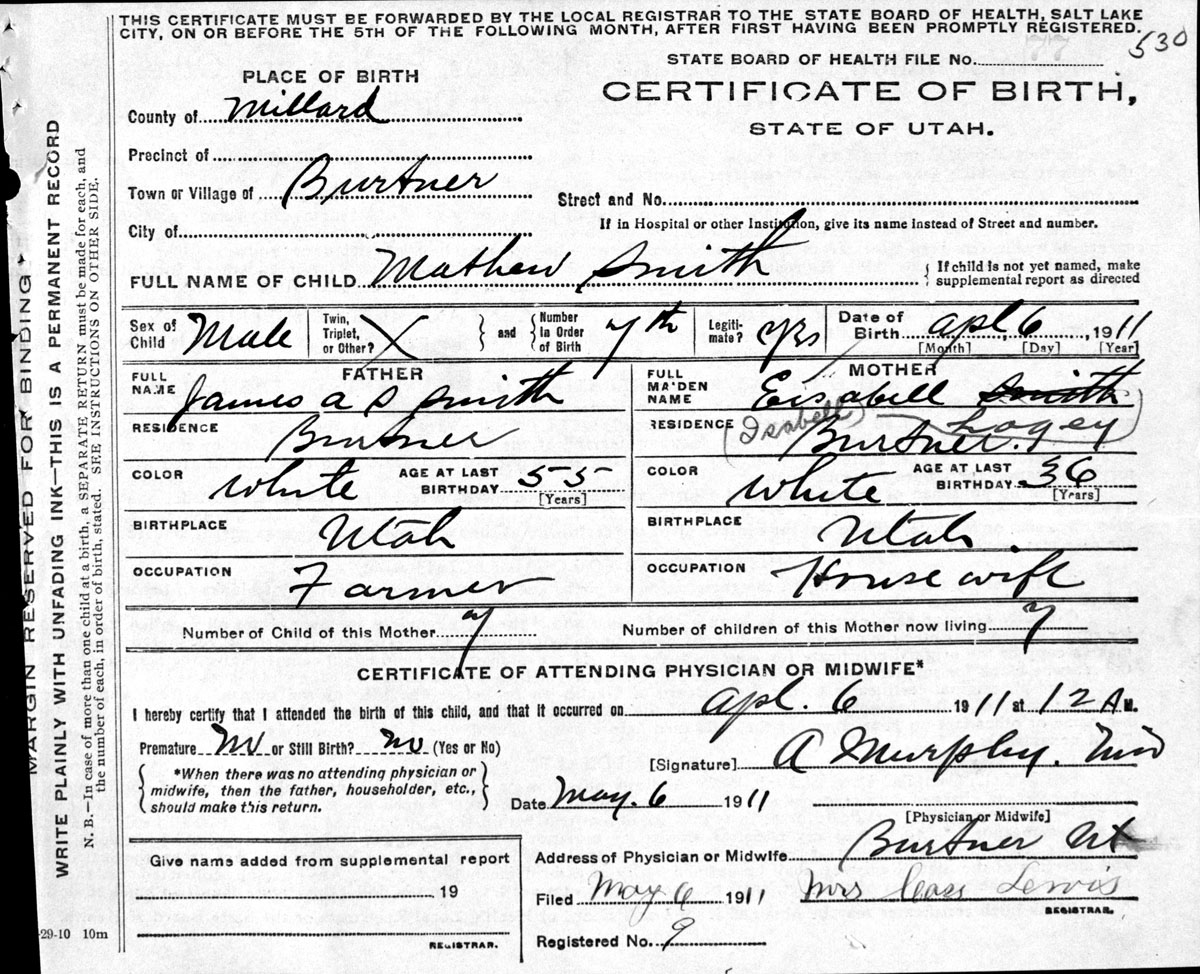 THIS CERTIFICATE MUST BE FORWARDED BY THE LOCAL REGISTRAR TO THE STATE BOARD OF HEALTH, SALT LAKE
CITY, ON OR BEFORE THE 5TH OF THE FOLLOWING MONTH, AFTER FIRST HAVING BEEN PROMPTLY REGISTERED.
530
STATE BOARD OF HEALTH FILE No. 77
PLACE OF BIRTH
CERTIFICATE OF BIRTH,
STATE OF UTAH.
County of Millard
Precinct of
Town or Village of Burtner
Street and No.
City of
If in Hospital or other Institution, give its name instead of Street and number.
FULL NAME OF CHILD Mathew Smith
If child is not yet named, make
supplemental report as directed
Sex of Child Male
Twin, Triplet, or Other? X
and Number in Order of Birth 7th
Legitimate? yes
Date of Birth apl 6, 1911
[Month] [Day] [Year]
FATHER
FULL NAME James a s smith
RESIDENCE Burtner
COLOR white AGE AT LAST BIRTHDAY 55 [Years]
BIRTHPLACE Utah
OCCUPATION Farmer
MOTHER
FULL MAIDEN NAME Eisabell Smith
(Isabell
RESIDENCE Burtner.
COLOR white AGE AT LAST BIRTHDAY 36 [Years]
BIRTHPLACE Utah.
OCCUPATION House wife
Number of Child of this Mother 7
Number of children of this Mother now living 7
CERTIFICATE OF ATTENDING PHYSICIAN OR MIDWIFE*
I hereby certify that I attended the birth of this child, and that it occurred on apl. 6 1911 at 12 A M.
Premature no or Still Birth? no (Yes or No)
[Signature] A Murphy.
*When there was no attending physician or
midwife, then the father, householder, etc.,
should make this return.
Date May. 6 1911
[Physician or Midwife]
Address of Physician or Midwife Burtner Ut
Give name added from supplemental report
19
REGISTRAR.
Filed May 6 1911 Mrs Cass Lewis
REGISTRAR.
Registered No. 9
-29-10 10m
MARGIN RESERVED FOR BINDING
WRITE PLAINLY WITH UNFADING INK—THIS IS A PERMANENT RECORD
N. B.—In case of more than one child at a birth, a SEPARATE RETURN must be made for each, and
the number of each, in order of birth, stated. SEE INSTRUCTIONS ON OTHER SIDE.